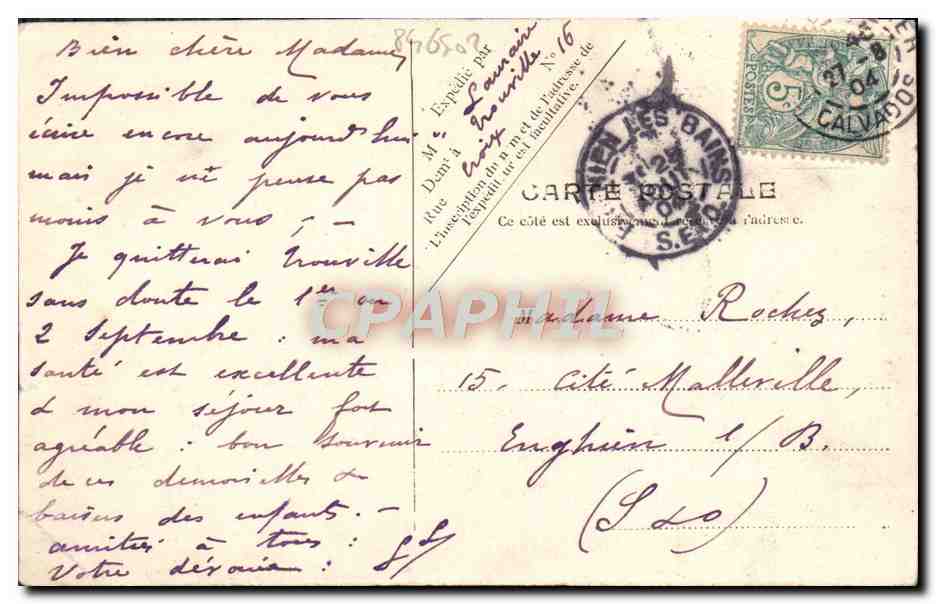 Bien chère Madame,
Impossible de vous
écrire encore aujourd'hui
mais je n'en pense pas
moins à vous, -
Je quitterai Trouville
sans doute le 1er ou
2 Septembre : ma
santé est excellente
& mon séjour fort
agréable : bon souvenir
de ces demoiselles &
baisers des enfants. -
amitiés à tous :
Votre dévouée :
846502
Expédié par
M
Demt à Trouville
Rue Croix No 16
L'inscription du nom et de l'adresse de
l'expéditeur est facultative.
CARTE POSTALE
Ce côté est exclusivement réservé à l'adresse.
ENGHIEN LES BAINS
S.ET O.
POSTES
5c
27 -8
04
CALVADOS
Madame Rochez,
15, Cité Malleville,
Enghien s/ B.
(S &O)
CPAPHIL